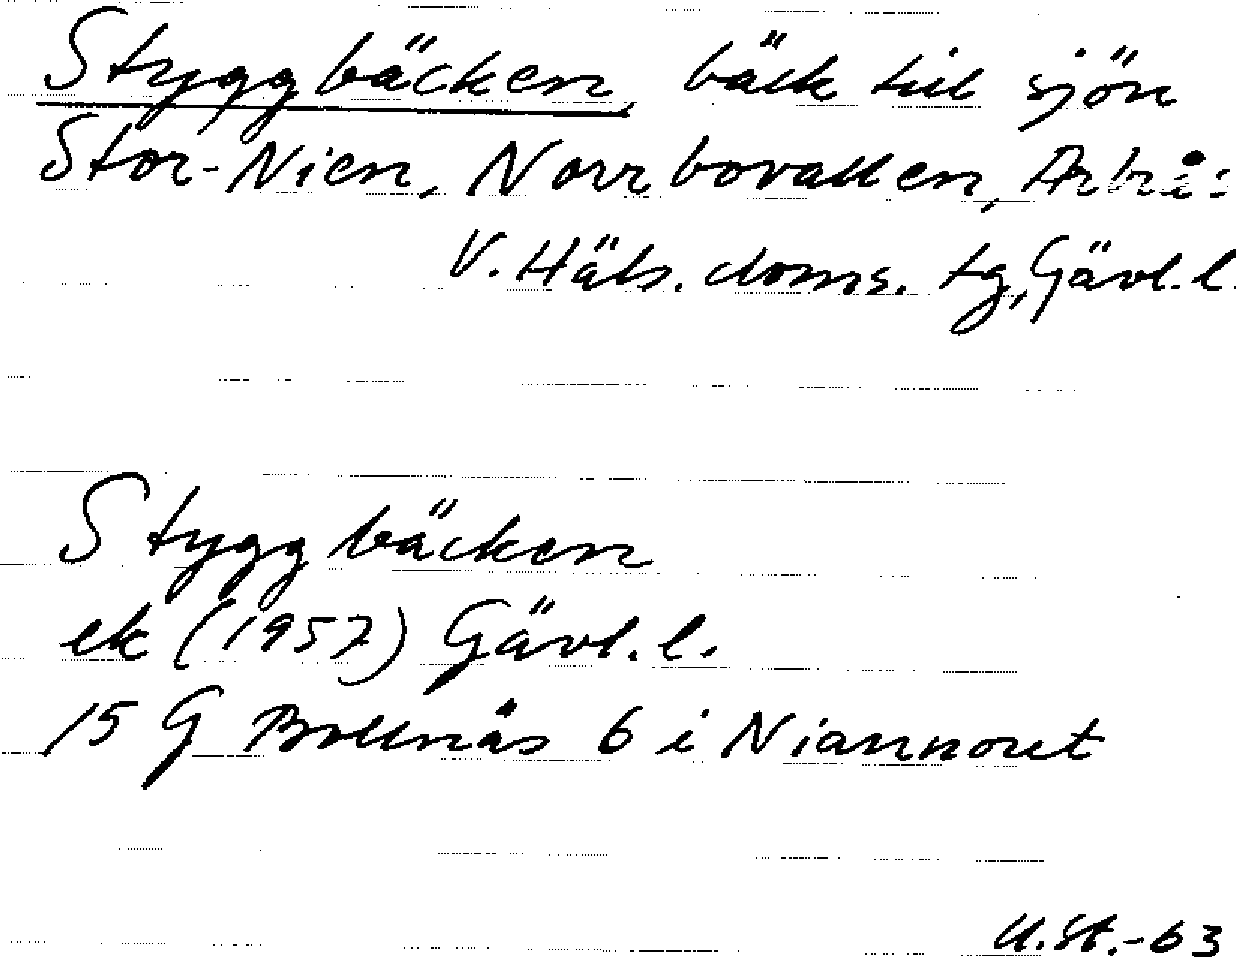 Styggbäcken, bäck till sjön
Stor-Nien, Norrbovallen, Arbrå s
V. Häls. doms. tg, Gävl. l.
Styggbäcken
ek (1957) Gävl. l.
15 G Bollnäs 6 i Niannoret
U.St.-63